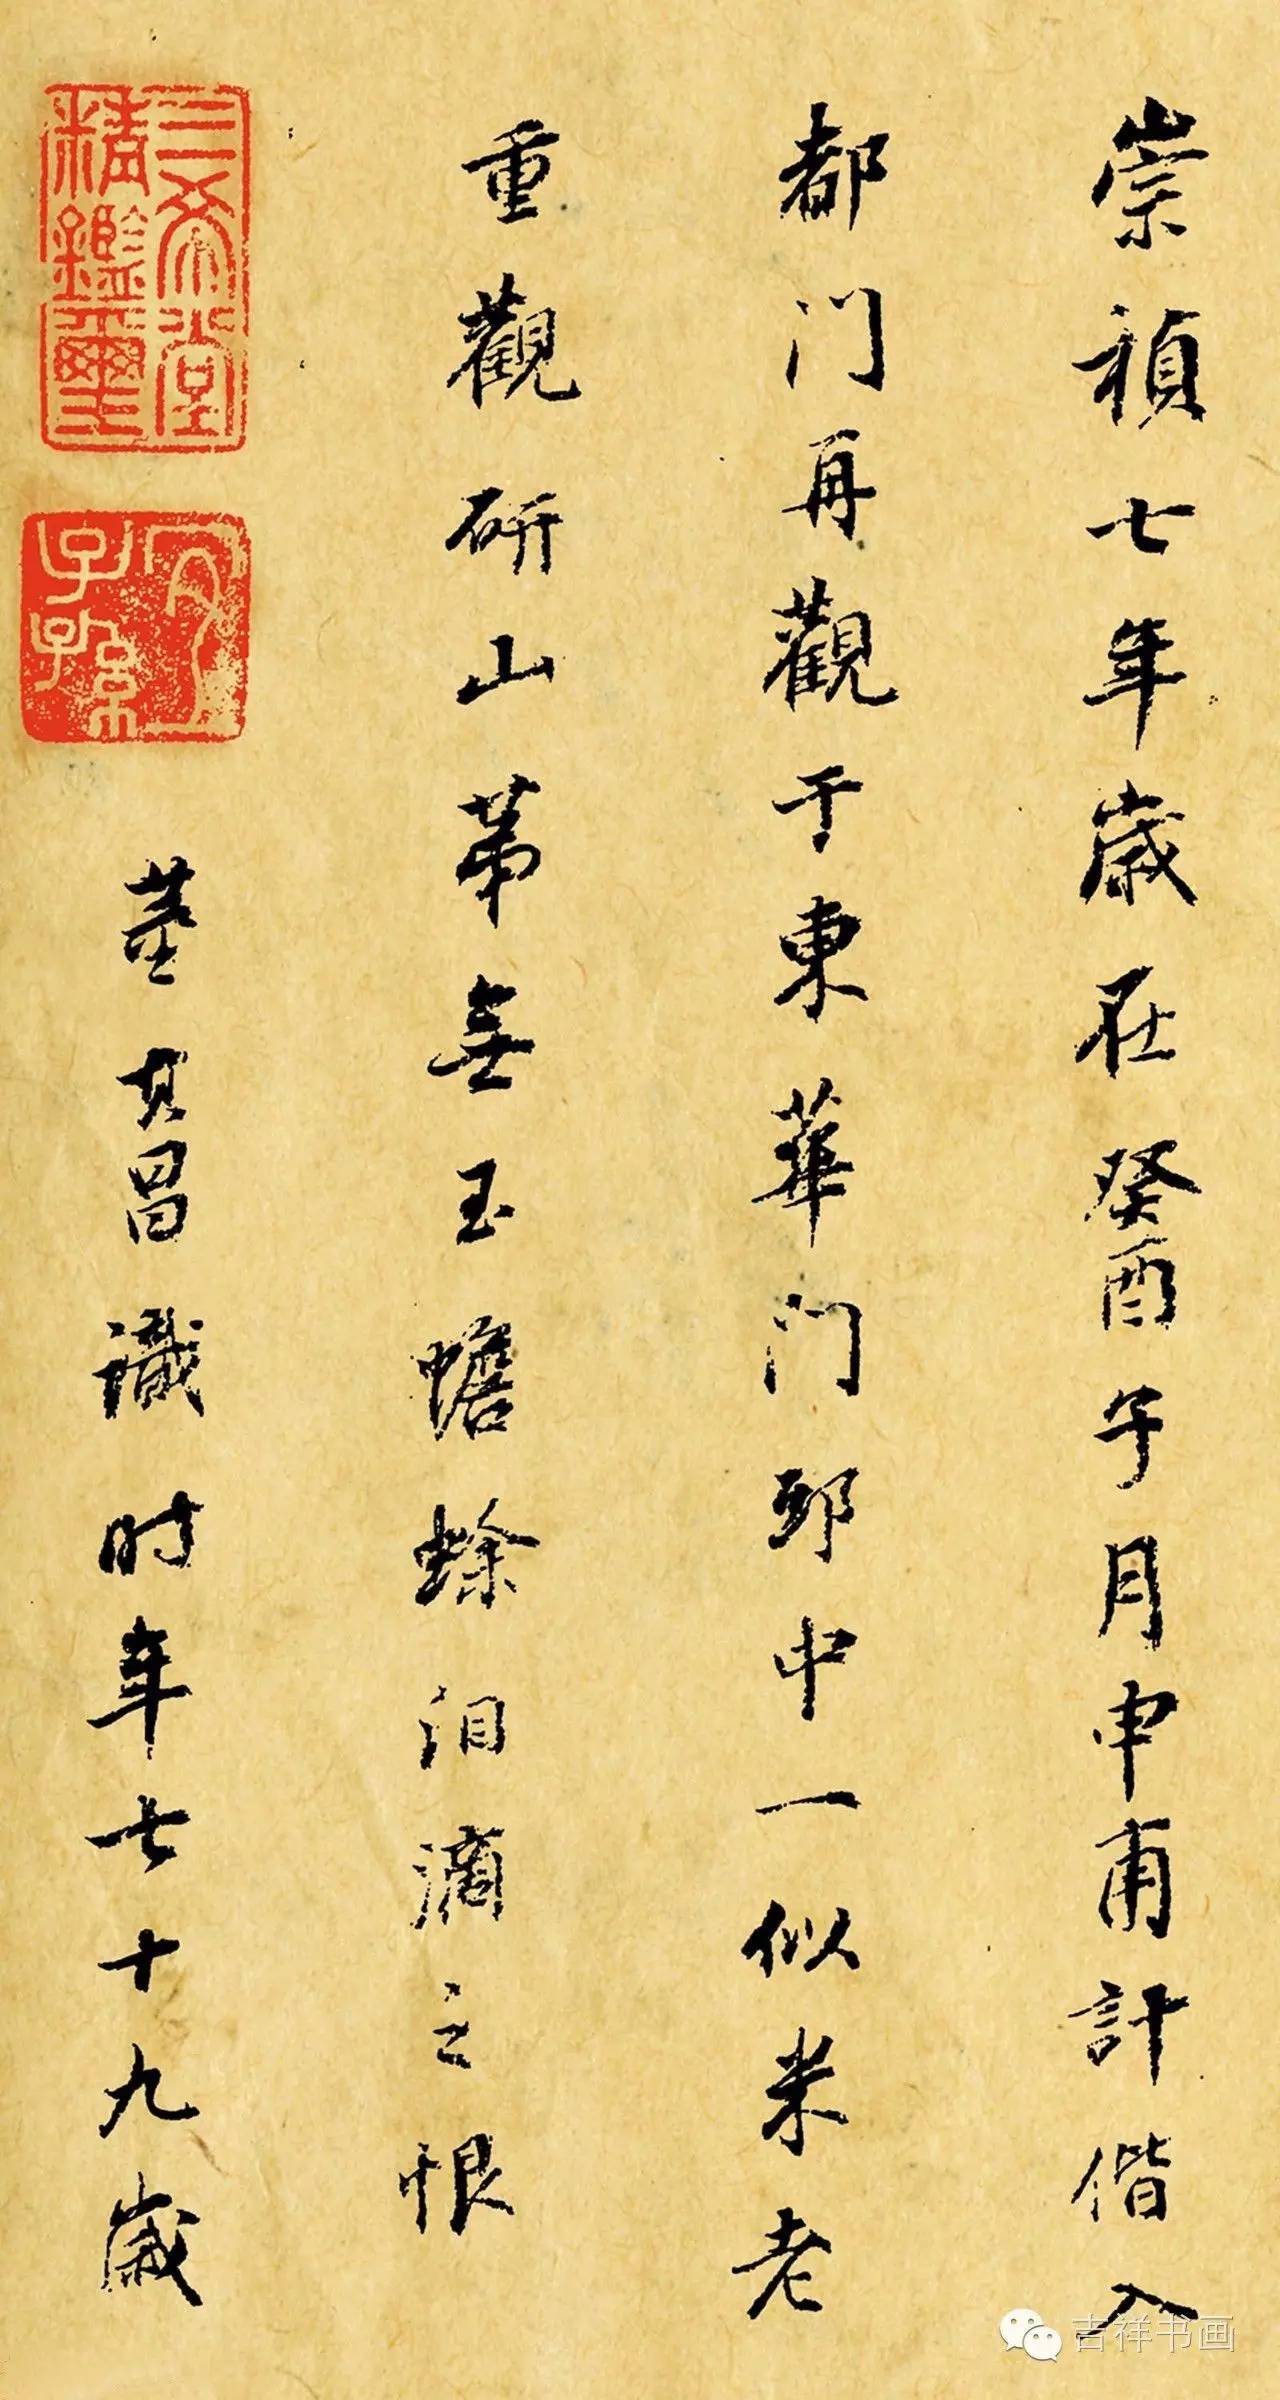 崇禎七年歲在癸酉子月申甫計偕入
都门再觀于東華门邸中一似米老
重觀研山苐無玉蟾蜍泪滴之恨
董其昌識时年七十九歲
三希堂精鑑璽
宜子孫
吉祥书画